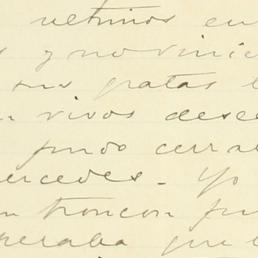 ultimos en
s y no vinie
sus gratas
vivos dese
pudo cerra
ercedes. Yo
n troncon fu
peraba que